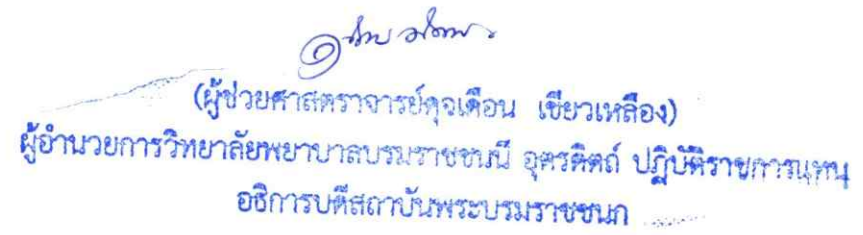 (ผู้ช่วยศาสตราจารย์ดุจเดือน เขียวเหลือง)
ผู้อำนวยการวิทยาลัยพยาบาลบรมราชชนนี อุตรดิตถ์ ปฏิบัติราชการแทน
อธิการบดีสถาบันพระบรมราชชนก